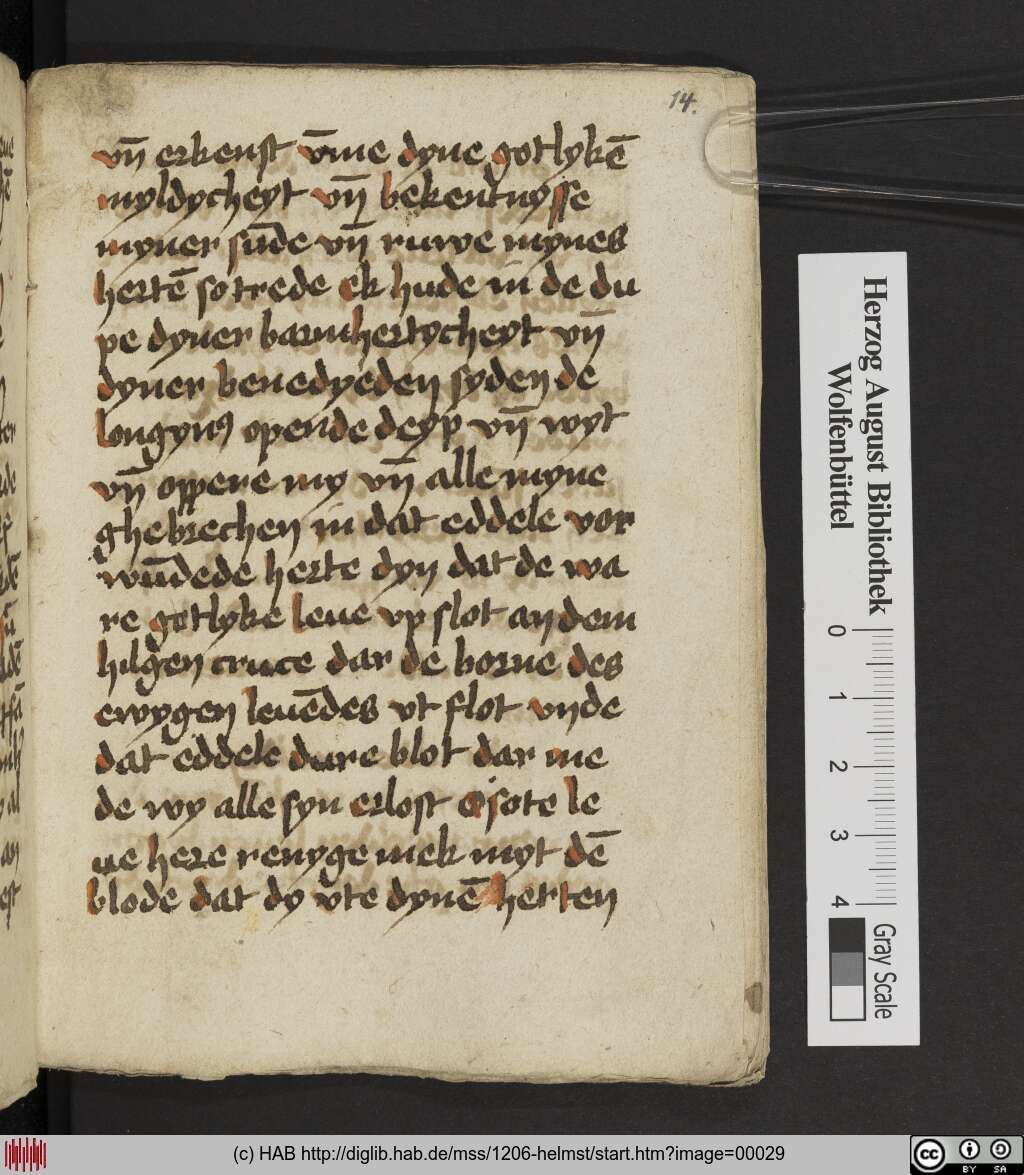 14.
vn̄ erkenst v̄me dyne gotlykē
myldycheyt vn̄ bekentnysse
myner sūde vn̄ ruwe mynes
hertē so trede ek hude in de du
pe dyner barmhertycheyt vn̄
dyner benedyeden syden de
longynꝰ opende deyp vn̄ wyt
vn̄ oppere my vn̄ alle myne
ghebrechen in dat eddele vor
wūdede herte dyn dat de wa
re gotlyke leue vp slot an dem
hilgen cruce dar de borne des
ewygen leuēdes vt flot vnde
dat eddele dure blot dar me
de wy alle syn erlost O sote le
ue here renyge mek myt dē
blode dat dy vte dynē herten
Herzog August Bibliothek
Wolfenbüttel
0 1 2 3 4
Gray Scale
(c) HAB http://diglib.hab.de/mss/1206-helmst/start.htm?image=00029
cc BY SA